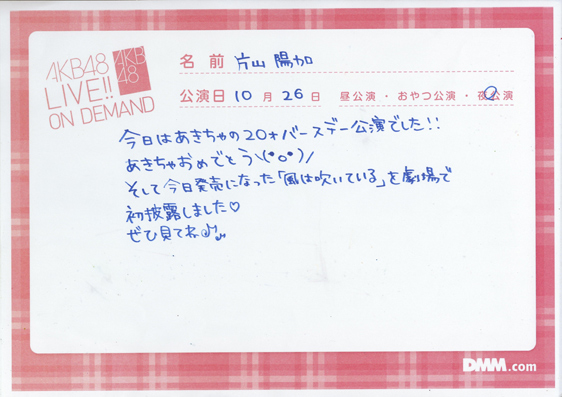 AKB48
LIVE!!
ON DEMAND
AKB
48
名前 片山 陽加
公演日 10月26日 昼公演・おやつ公演・夜公演
今日はあきちゃの20才バースデー公演でした!!
あきちゃおめでとうヽ(•o•)ノ
そして今日発売になった「風は吹いている」を劇場で
初披露しました♡
ぜひ見てね♪
DMM.com